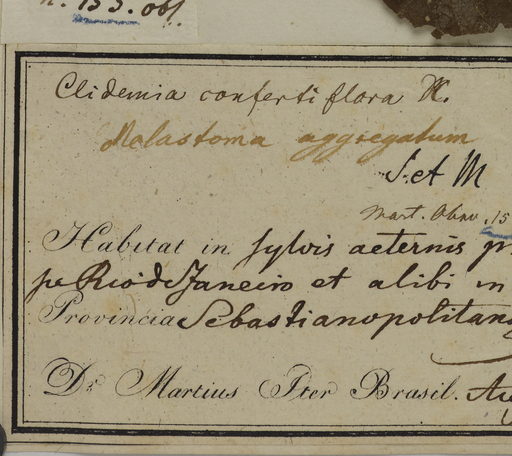 n. 153. obs.
Clidemia confertiflora DC.
Melastoma aggregatum
S. et M
Mart. Obsv. 15
Habitat in sylvis aeternis pr
pe Rio d Janeiro et alibi in
Provincia Sebastianopolitana
Dr. Martius Iter Brasil. Au